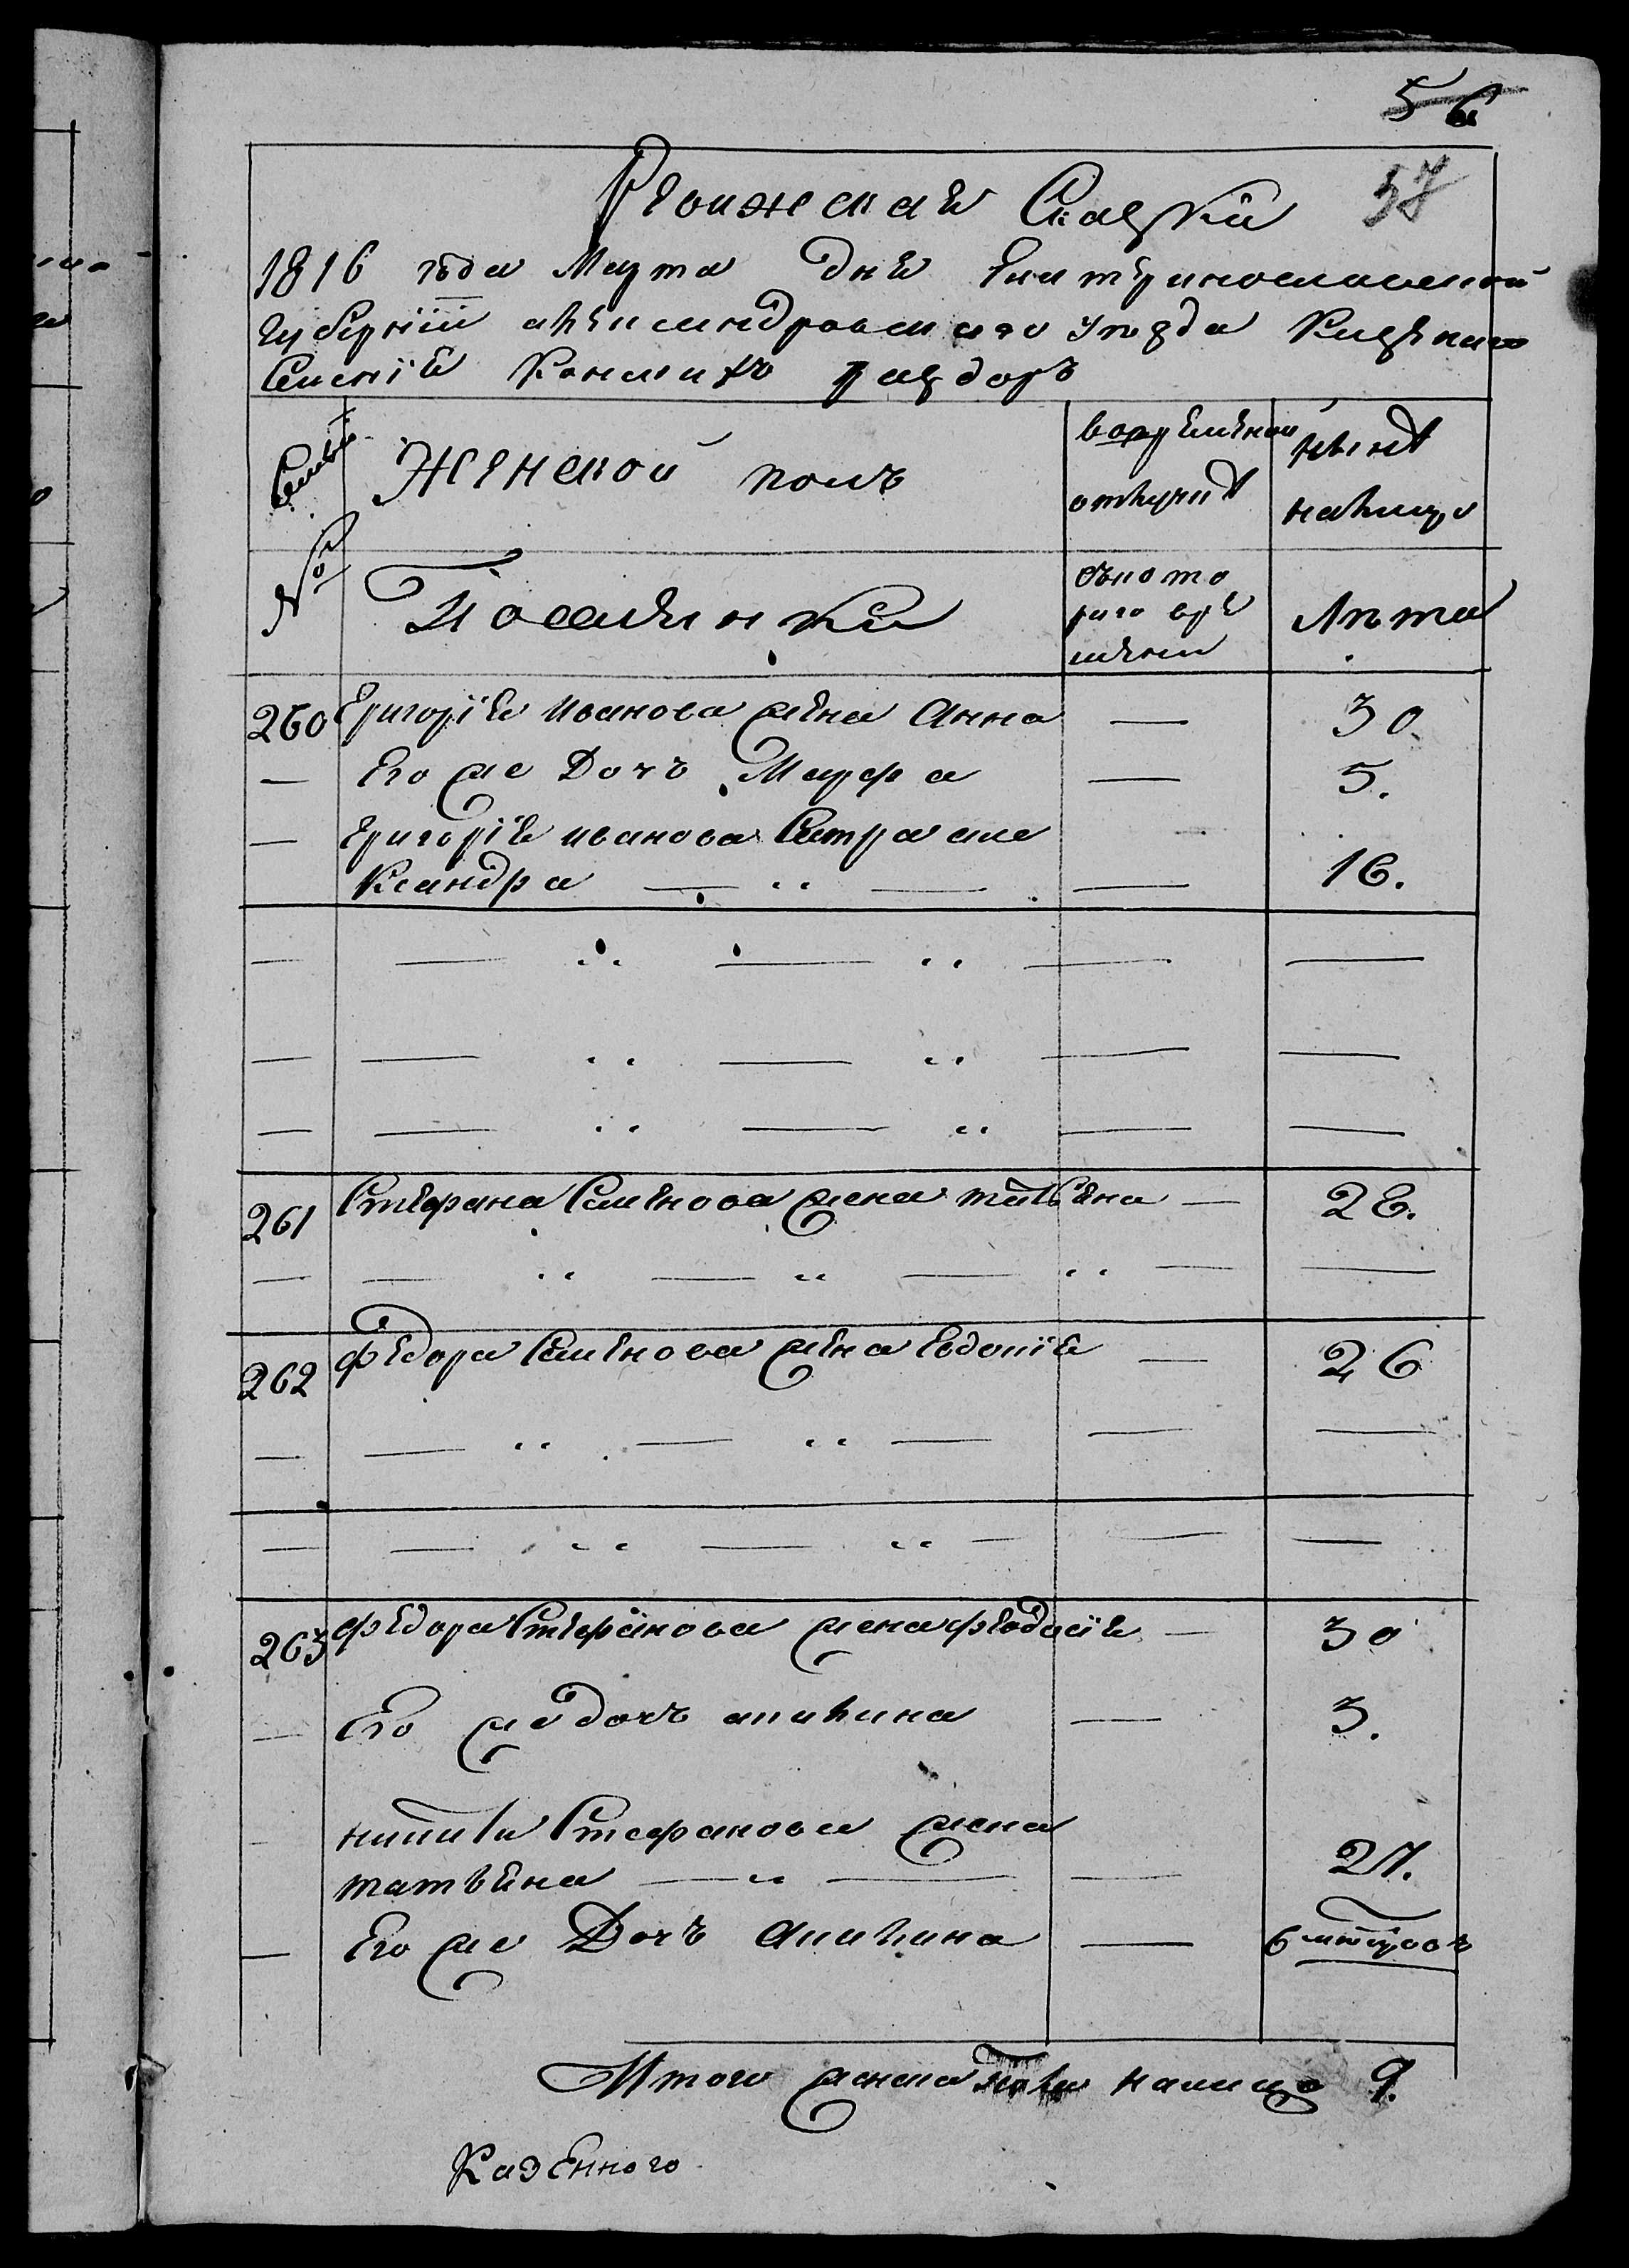 56
57
Ревижская Сказка
1816 года Марта дня Екатеринославской
Губернiи александровскаго уезда Казенаго
Селенiя Конскихъ раздоръ
Семьи
Женской полъ
вовремѣнной
отлучкѣ
нынѣ
налицо
№
Поселянки
съкото
раго вре
мѣни
Лѣта
260 Григорiя иванова жена анна — 30.
— Его же Дочь Марфа — 5.
— Григорiя иванова Сестра але
ксандра — „ — — 16.
— — „ — „ — —
— — „ — „ — —
— — „ — „ — —
261 Стефана Семенова жена татьяна — 26.
— — „ — „ — „ — —
262 федора Семенова жена Евдокiя — 26
— — „ — „ — — —
— — „ — „ — — —
263 федора Стефанова жена феодосiя — 30
— Его же дочь акилина — 3.
— никиты Стефанова жена
татьяна — „ — — 27.
— Его же Дочь Акилина — 6 мѣсяцовъ
Итого женска пола налицо 9.
Казенного